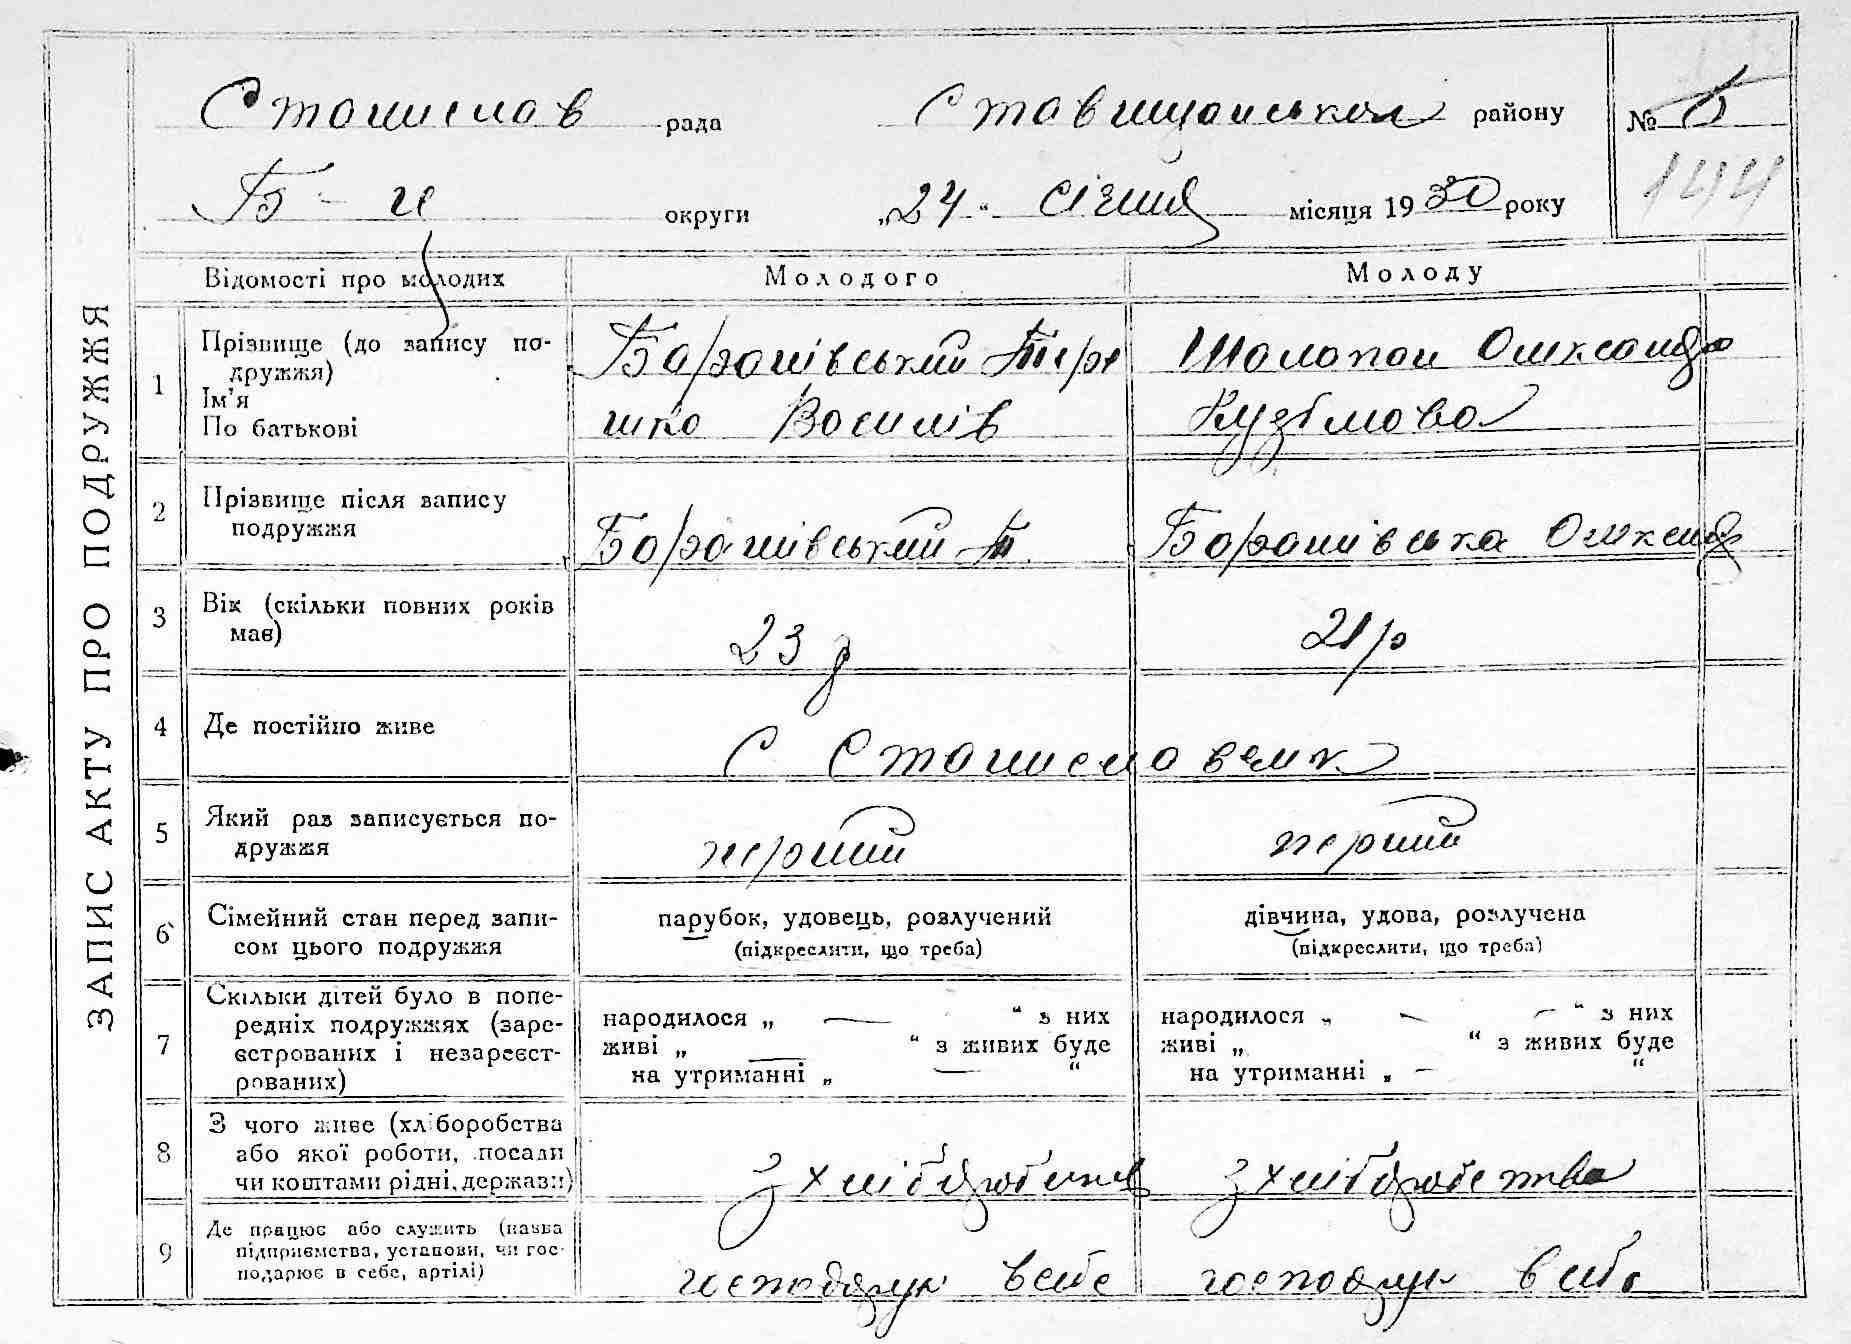 ЗАПИС АКТУ ПРО ПОДРУЖЖЯ
Станислав рада Ставищанськои району № 5
Б-ц округи „24“ січня місяця 1930 року
144
Відомості про молодих Молодого Молоду
1 Прізвище (до запису по-
дружжя)
Ім'я
По батькові
Баранівський Тере
шко Василів
Шалопан Олександра
Кузьмова
2 Прізвище після запису
подружжя
Баранівський Т. Баранівська Олександ
3 Вік (скільки повних років
має)
23 р 21 р
4 Де постійно живе
С Станиславчик
5 Який раз записується по-
дружжя
перший перший
6 Сімейний стан перед запи-
сом цього подружжя
парубок, удовець, розлучений
(підкреслити, що треба)
дівчина, удова, розлучена
(підкреслити, що треба)
7 Скільки дітей було в попе-
редніх подружжях (заре-
єстрованих і незареєст-
рованих)
народилося „ — “ з них
живі „ — “ з живих буде
на утриманні „ — “
народилося „ — “ з них
живі „ “ з живих буде
на утриманні „ — “
8 З чого живе (хліборобства
або якої роботи, посади
чи коштами рідні, держави)
з хліборобства з хліборобства
9 Де працює або служить (назва
підприємства, установи, чи гос-
подарює в себе, артілі)
господарює в себе господарює в себе